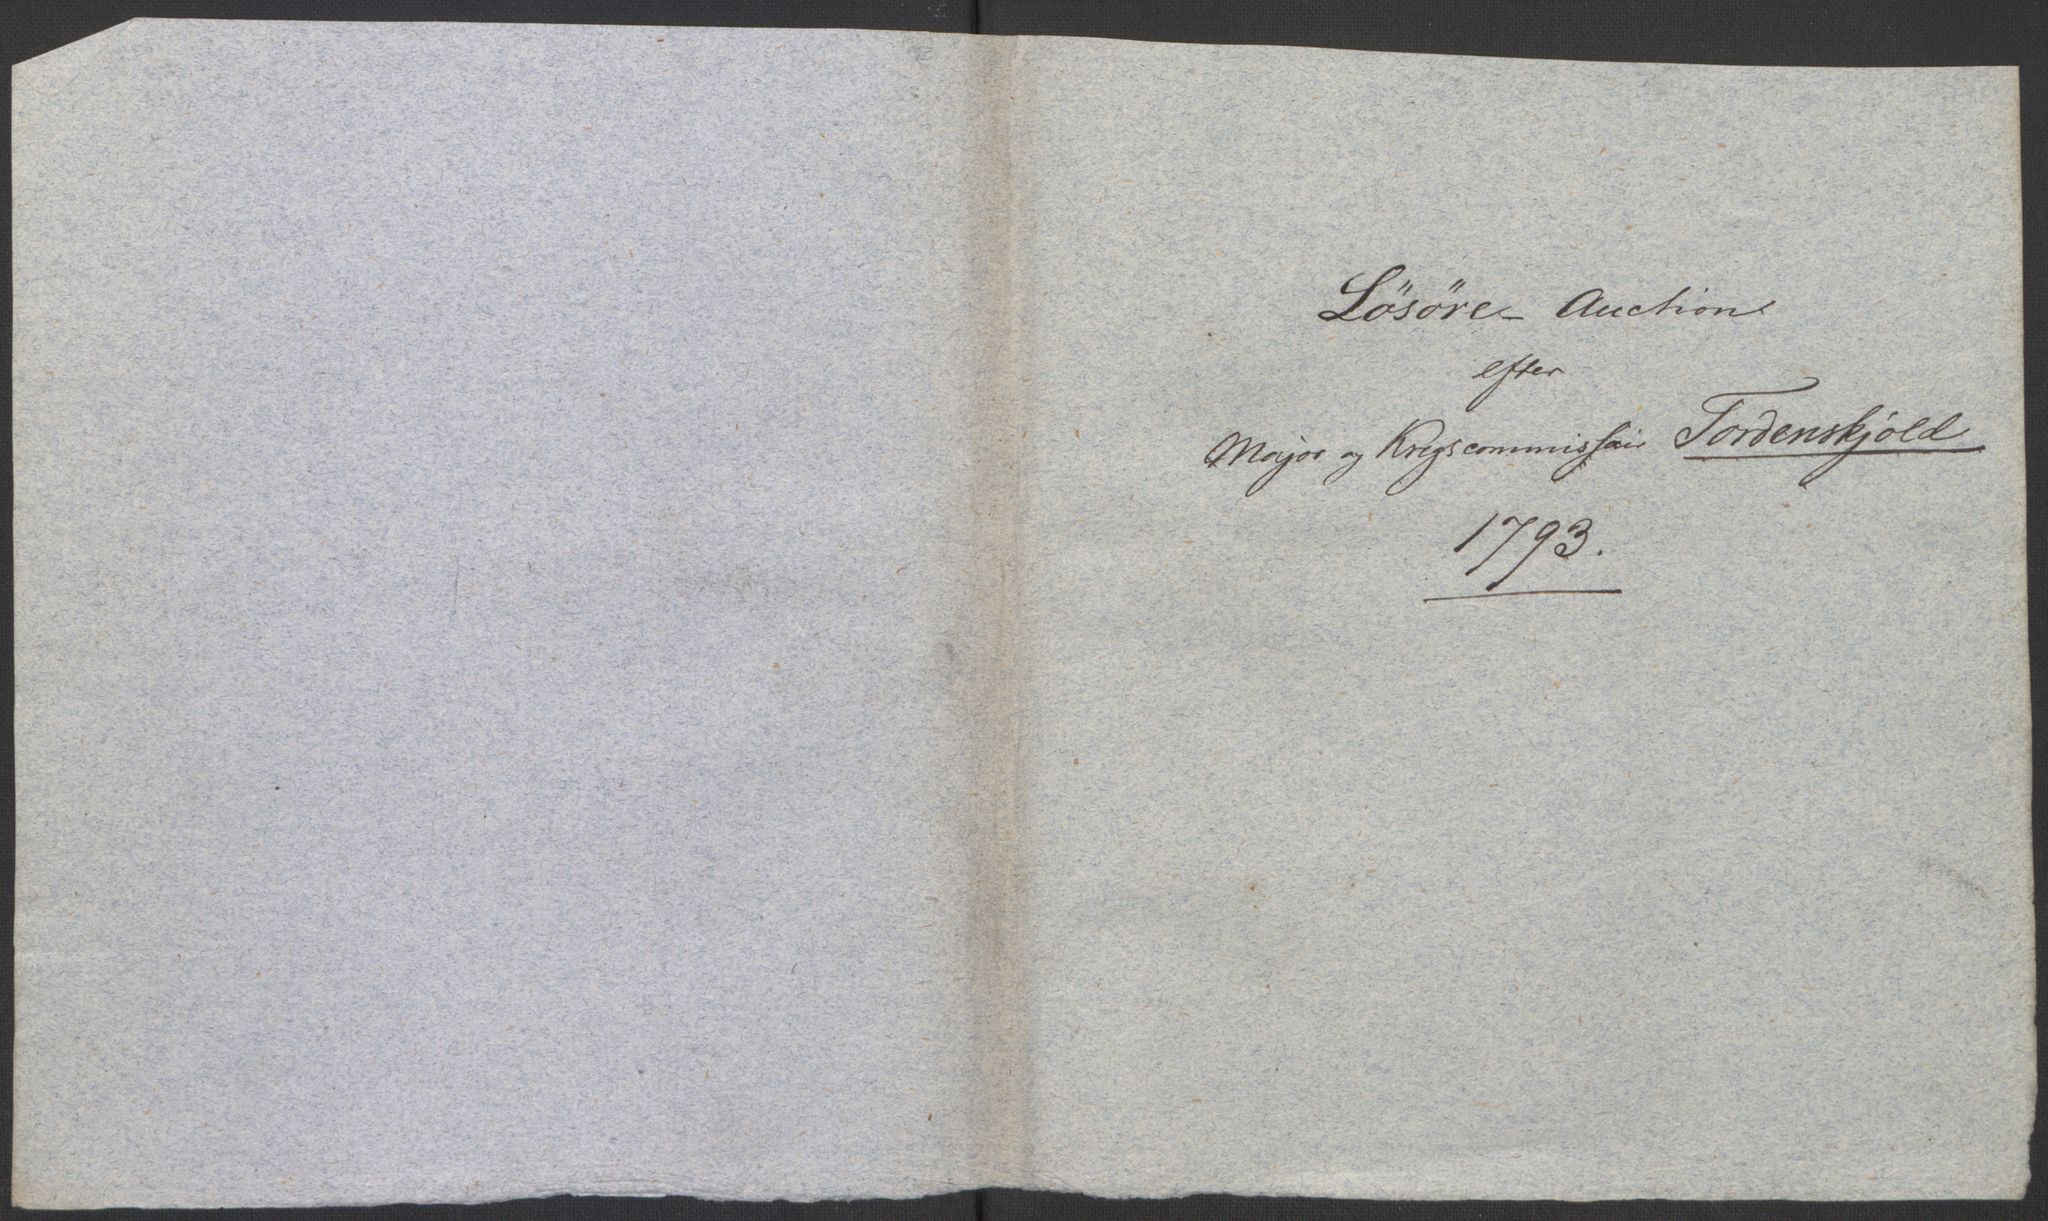 Lösöre - Auction
efter
Major og Krigscommissair Tordenskjöld
1793.